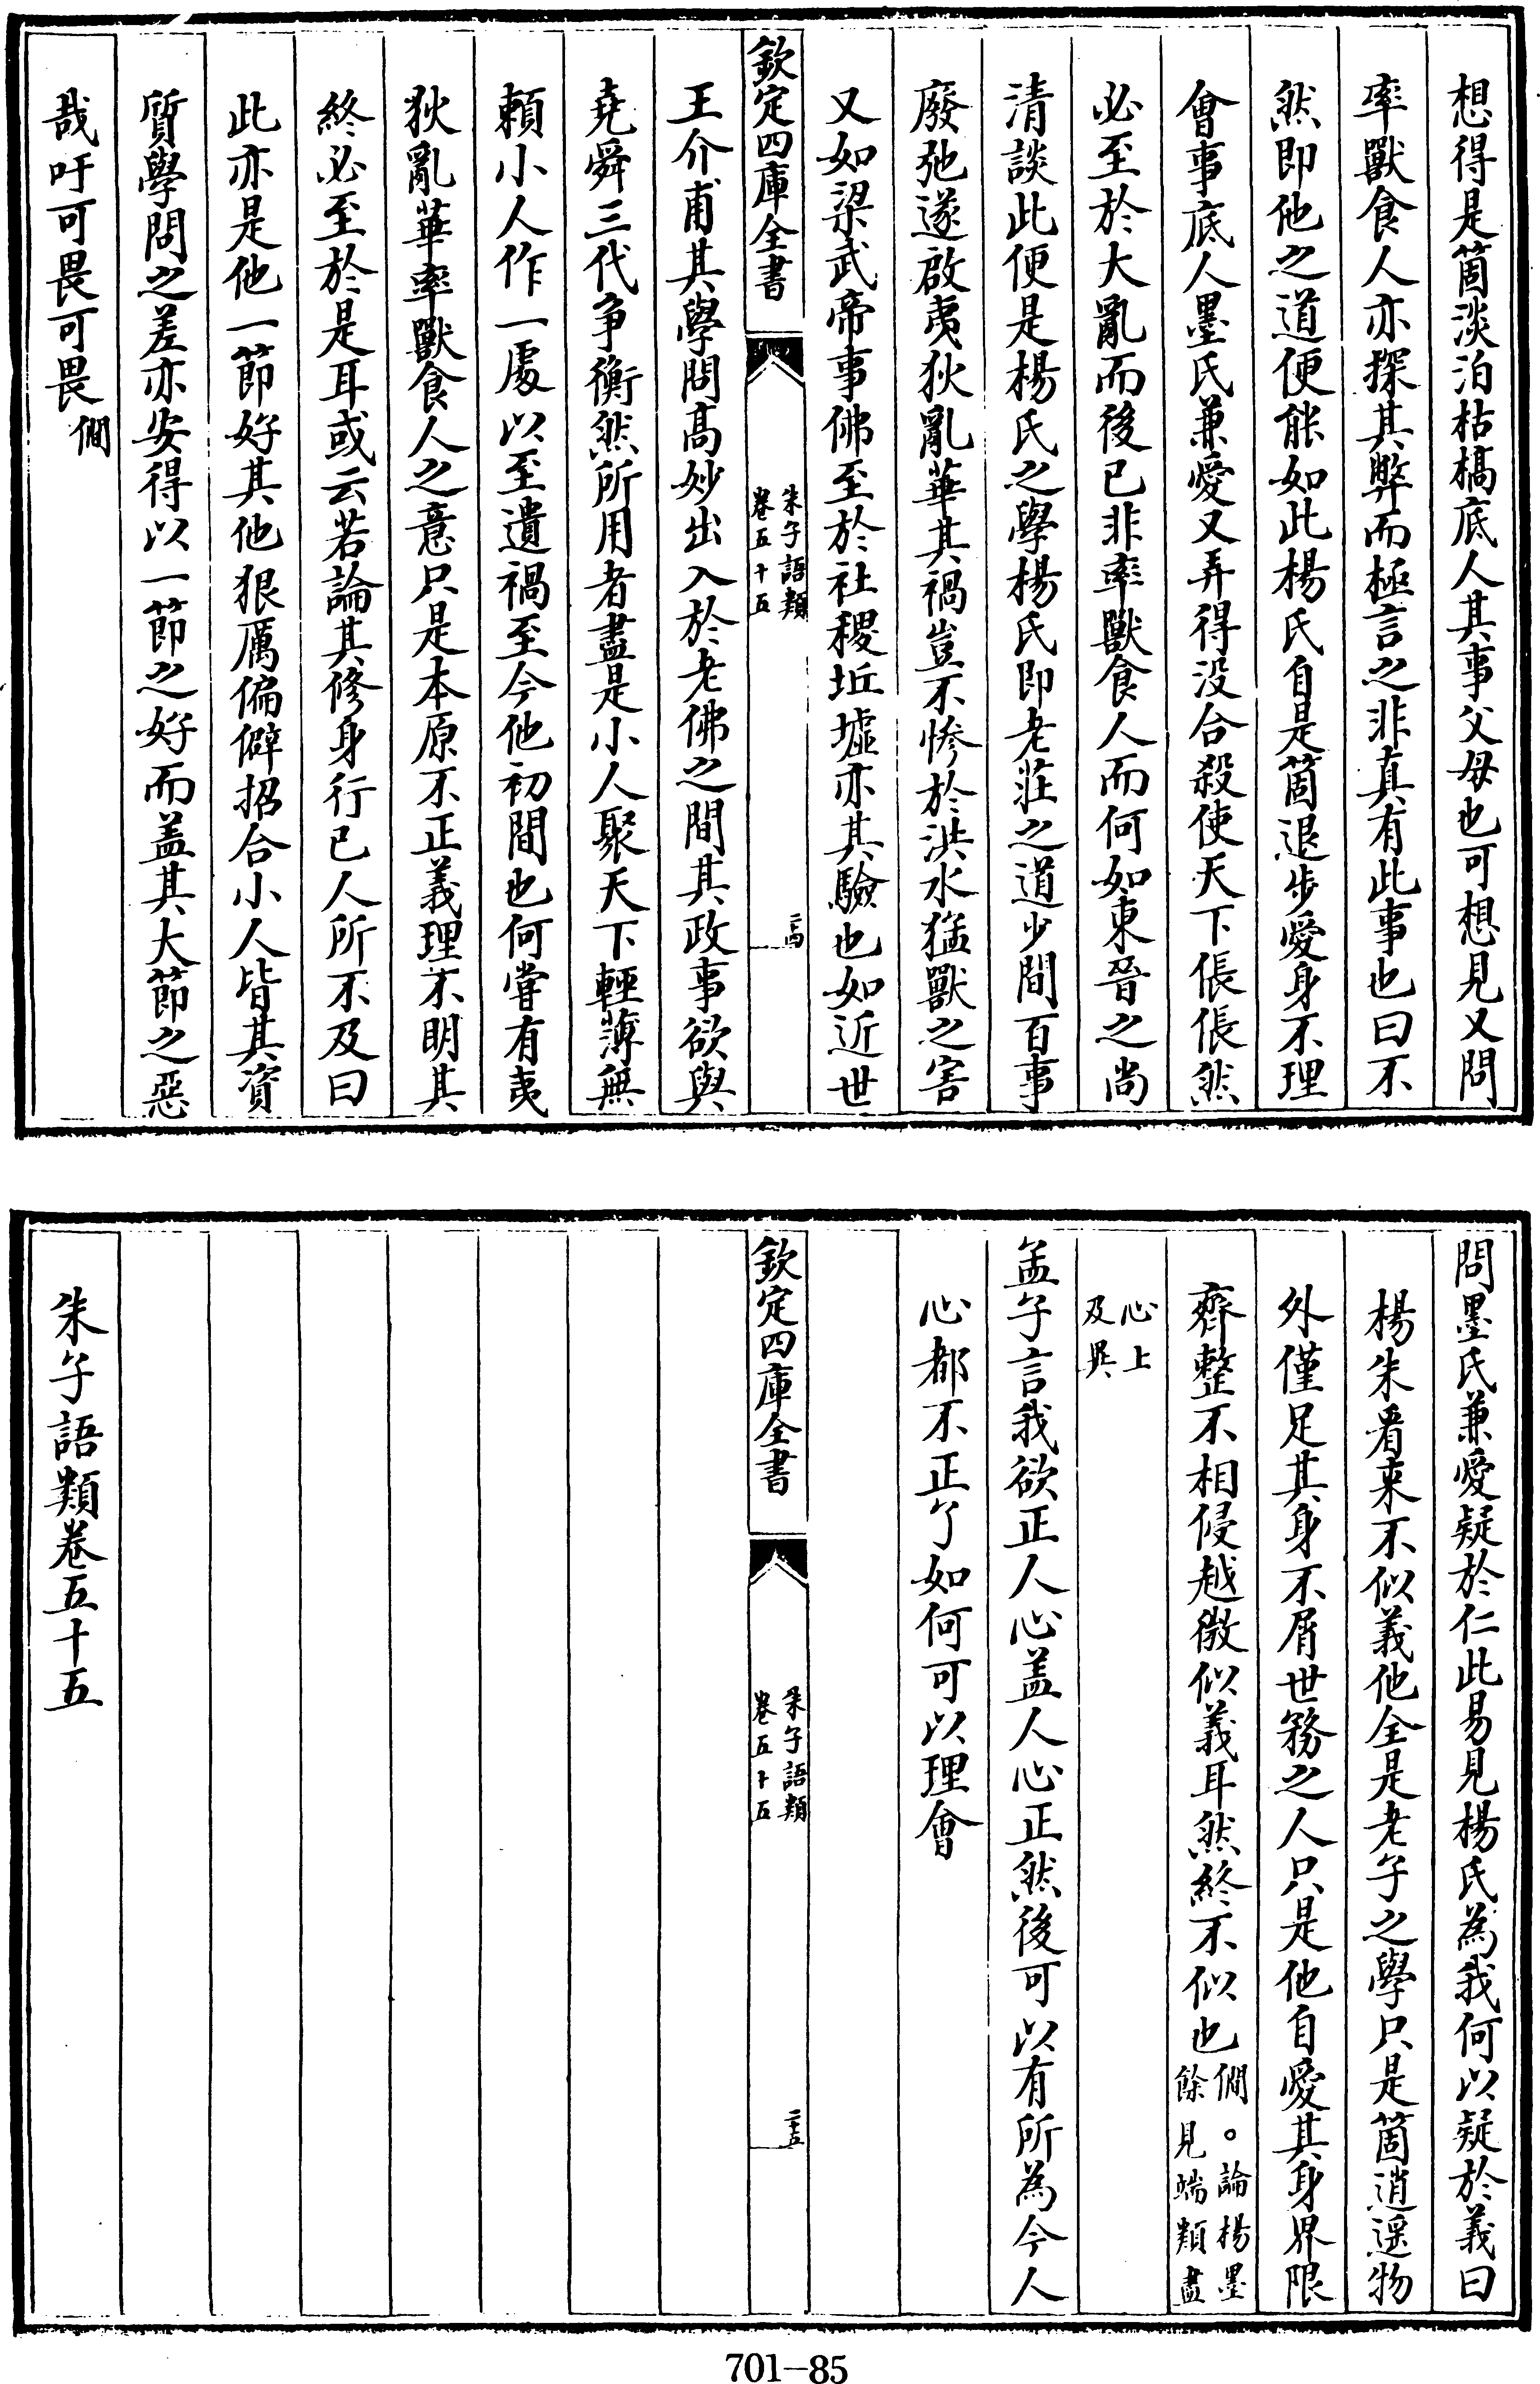 想得是箇淡泊枯槁底人其事父母也可想見又問
率獸食人亦探其弊而極言之非真有此事也曰不
然即他之道便能如此楊氏自是箇退步愛身不理
會事底人墨氏兼愛又弄得没合殺使天下倀倀然
必至於大亂而後已非率獸食人而何如東晉之尚
清談此便是楊氏之學楊氏即老莊之道少間百事
廢弛遂啟夷狄亂華其禍豈不慘於洪水猛獸之害
又如梁武帝事佛至於社稷坵墟亦其驗也如近世
欽定四庫全書
朱子語類
卷五十五
二十四
王介甫其學問高妙出入於老佛之間其政事欲與
堯舜三代争衡然所用者盡是小人聚天下輕薄無
賴小人作一處以至遺禍至今他初間也何嘗有夷
狄亂華率獸食人之意只是本原不正義理不明其
終必至於是耳或云若論其修身行已人所不及曰
此亦是他一節好其他狠厲偏僻招合小人皆其資
質學問之差亦安得以一節之好而盖其大節之惡
哉吁可畏可畏僩
問墨氏兼愛疑於仁此易見楊氏為我何以疑於義曰
楊朱看来不似義他全是老子之學只是箇逍遥物
外僅足其身不屑世務之人只是他自愛其身界限
齊整不相侵越微似義耳然終不似也僩。論楊墨
餘見端類盡
心上
及異
孟子言我欲正人心盖人心正然後可以有所為今人
心都不正了如何可以理會
欽定四庫全書
朱子語類
卷五十五
二十五
朱子語類卷五十五
701-85